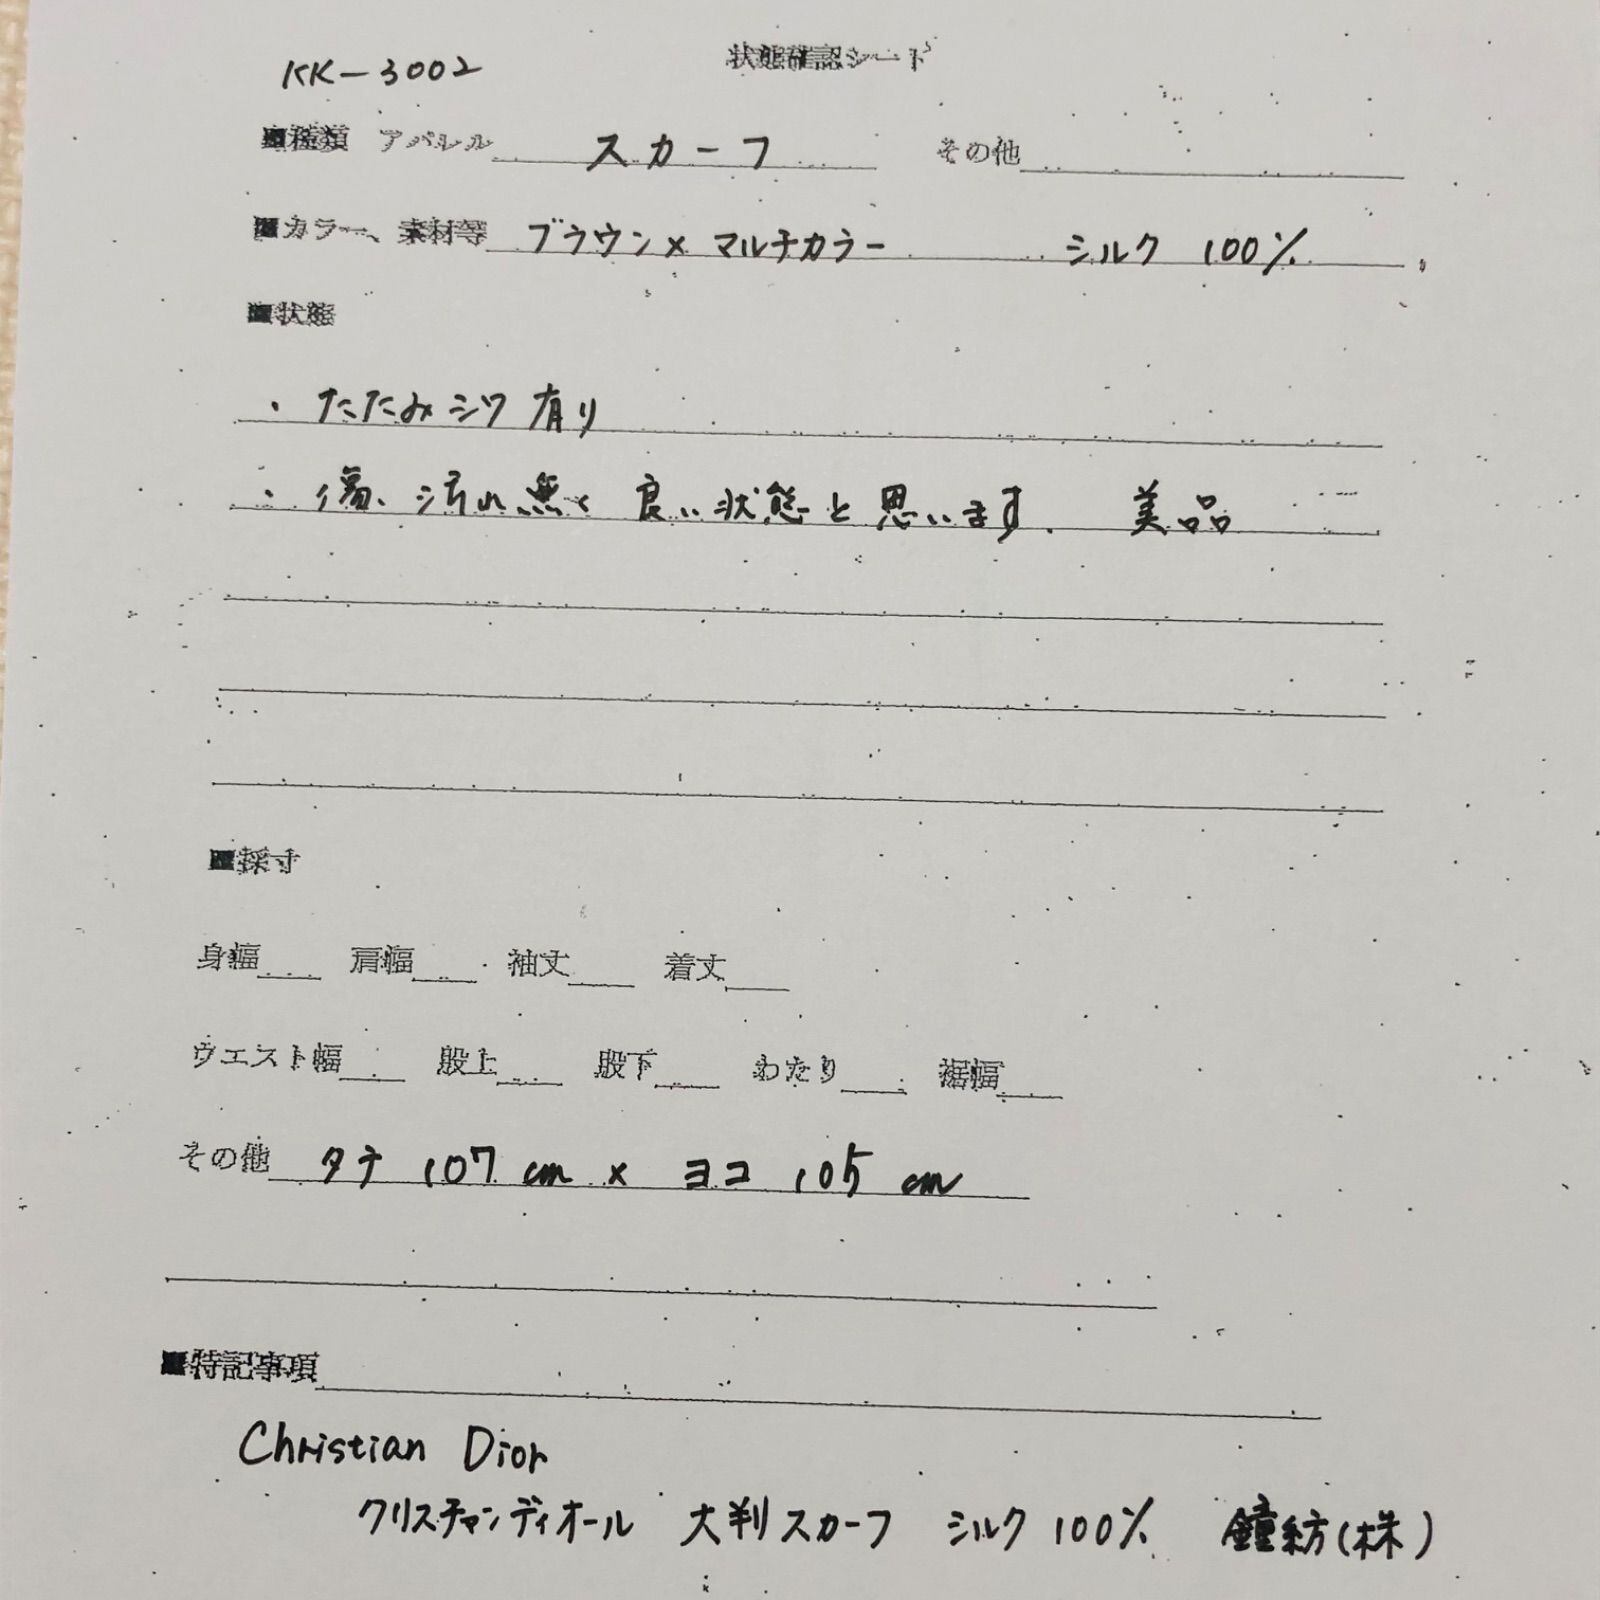 状態確認シート
KK-3002
■種類 アパレル スカーフ その他
■カラー、素材等 ブラウン×マルチカラー シルク 100%
■状態
・たたみシワ有り
・傷、汚れ無く 良い状態と思います. 美品
■採寸
身幅 肩幅 袖丈 着丈
ウエスト幅 股上 股下 わたり 裾幅
その他 タテ 107 cm × ヨコ 105 cm
■特記事項
Christian Dior
クリスチャンディオール 大判スカーフ シルク100% 鐘紡(株)